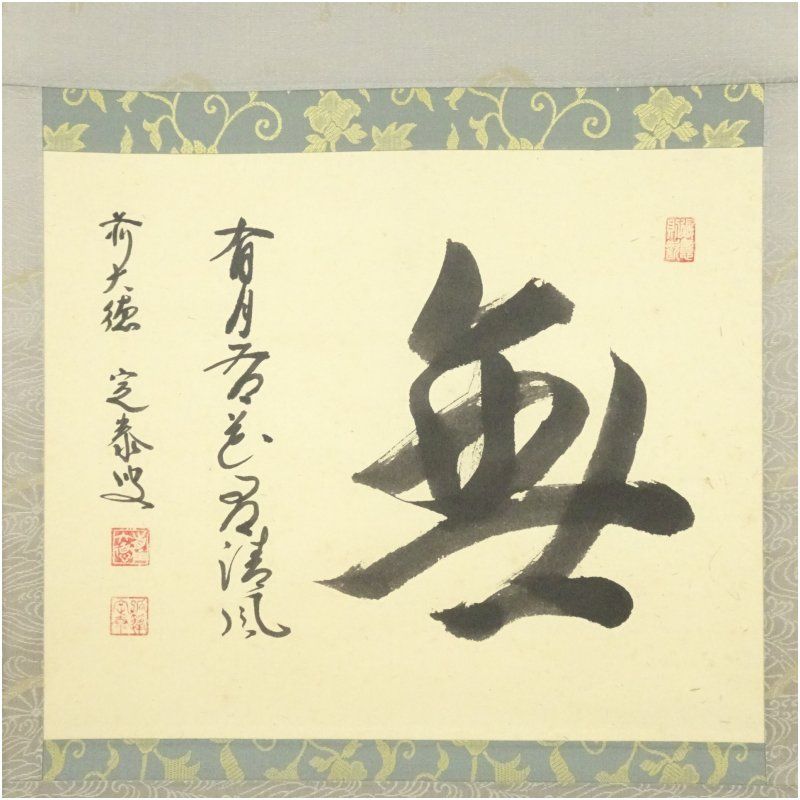 無
有月有花有清風
前大徳 定泰叟